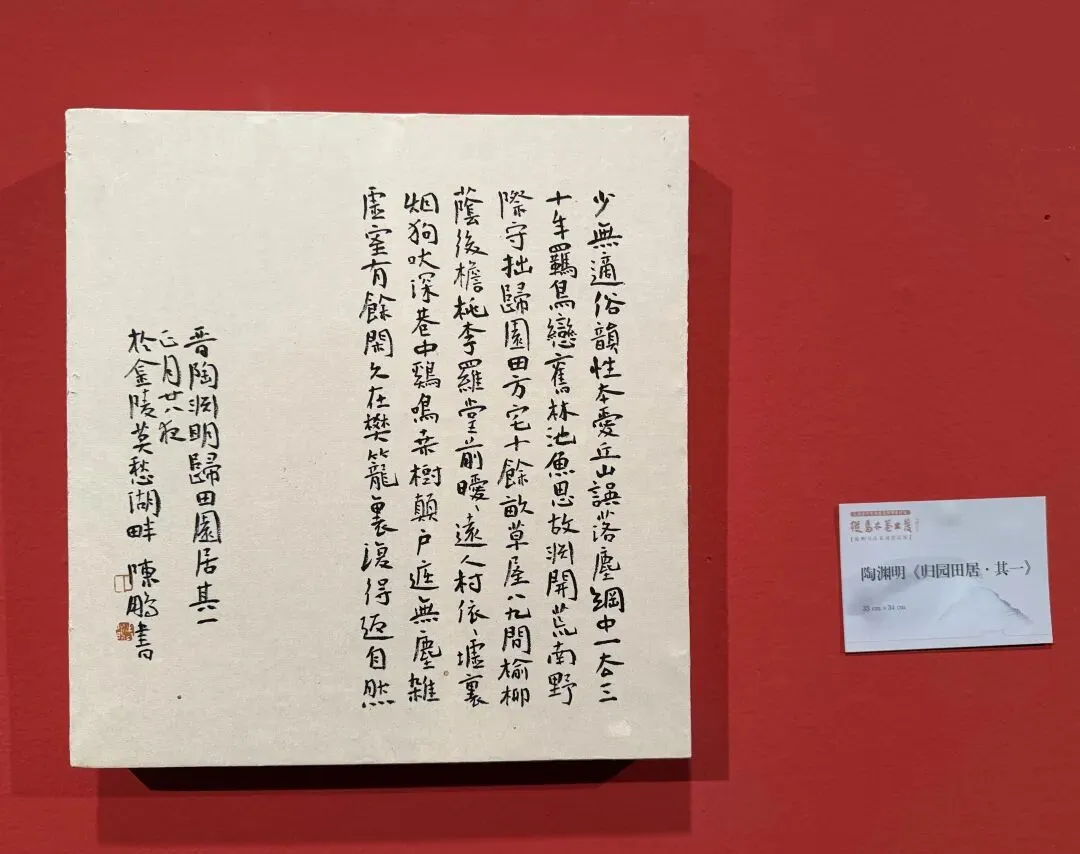 少無適俗韻性本愛丘山誤落塵網中一去三
十年羈鳥戀舊林池魚思故淵開荒南野
際守拙歸園田方宅十餘畝草屋八九間榆柳
蔭後檐桃李羅堂前曖、遠人村依、墟裏
烟狗吠深巷中鷄鳴桒樹顛户庭無塵雜
虛室有餘閑久在樊籠裏復得返自然
晋陶渊明歸田園居其一
正月廿八夜
於金陵莫愁湖畔 陳鵬書
陶渊明《归园田居·其一》
35 cm x 34 cm